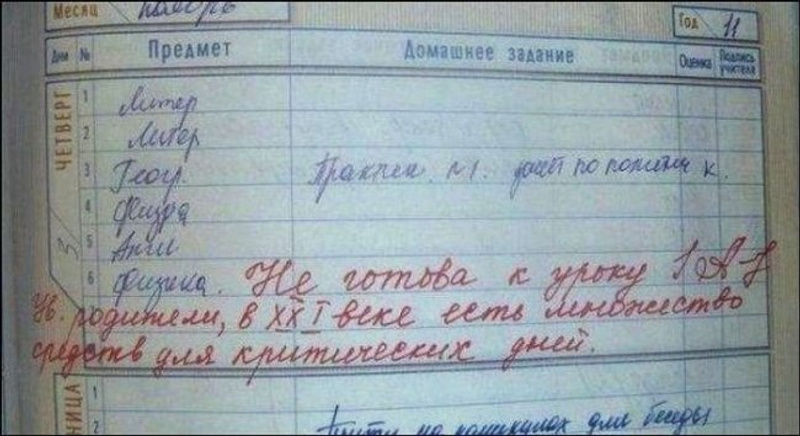 Месяц ноябрь Год 11
Дни № Предмет Домашнее задание Оценка Подпись учителя
ЧЕТВЕРГ 3
1 Литер
2 Литер
3 Геогр. Практич. №1.
4 Физра
5 Англ
6 Физика. Не готова к уроку
Ув. родители, в XXI веке есть множество
средств для критических дней.
НИЦА
1
2 на каникулах для беседы